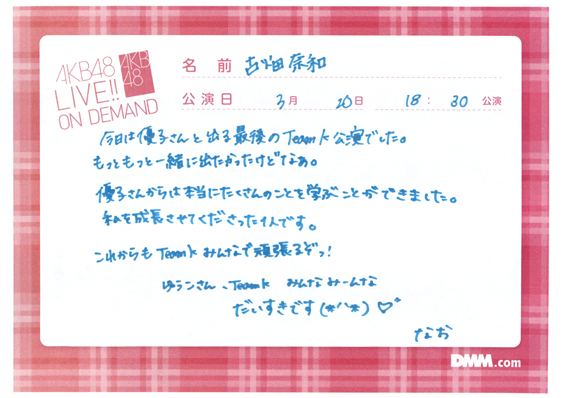 AKB48
LIVE!!
ON DEMAND
AKB
48
名 前 古畑奈和
公演日 3月 20日 18: 30 公演
今日は優子さんと出る最後のTeamK公演でした。
もっともっと一緒に出たかったけどなぁ。
優子さんからは本当にたくさんのことを学ぶことができました。
私を成長させてくださった1人です。
これからもTeamKみんなで頑張るぞっ!
ゆうこさん、TeamK みんなみーんな
だいすきです(*'^'*)♡
なお
DMM.com